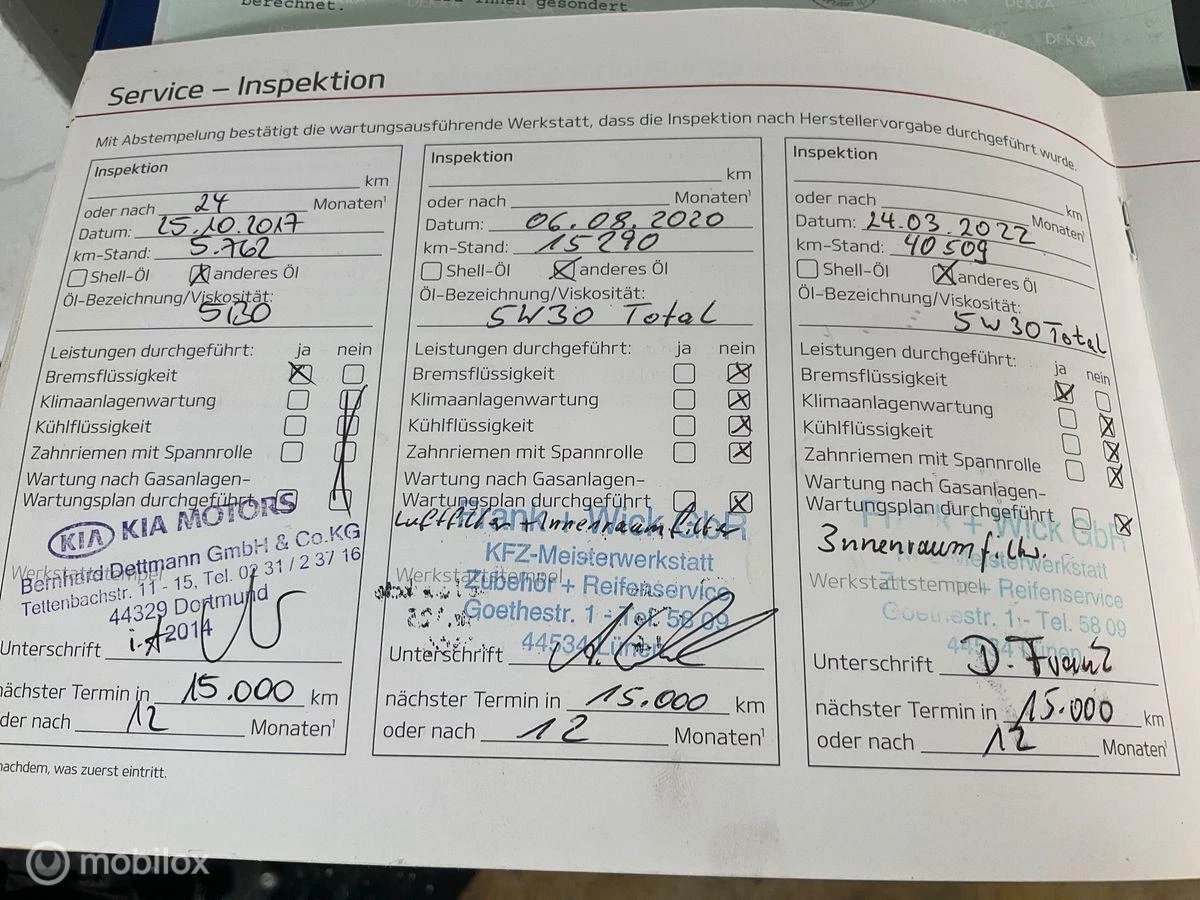 berechnet.
Ihnen gesondert
DEKRA
DEKRA
DEKRA
Service – Inspektion
Mit Abstempelung bestätigt die wartungsausführende Werkstatt, dass die Inspektion nach Herstellervorgabe durchgeführt wurde.
Inspektion
km
oder nach 24 Monaten¹
Datum: 25.10.2017
km-Stand: 5.762
Shell-Öl anderes Öl
Öl-Bezeichnung/Viskosität:
5130
Leistungen durchgeführt: ja nein
Bremsflüssigkeit
Klimaanlagenwartung
Kühlflüssigkeit
Zahnriemen mit Spannrolle
Wartung nach Gasanlagen-
Wartungsplan durchgeführt
KIA KIA MOTORS
Bernhard Dettmann GmbH & Co.KG
Werkstattstempel
Tettenbachstr. 11 - 15, Tel. 02 31 / 2 37 16
44329 Dortmund
2014
Unterschrift i.A
nächster Termin in 15.000 km
oder nach 12 Monaten¹
Inspektion
km
oder nach Monaten¹
Datum: 06.08.2020
km-Stand: 15290
Shell-Öl anderes Öl
Öl-Bezeichnung/Viskosität:
5W30 Total
Leistungen durchgeführt: ja nein
Bremsflüssigkeit
Klimaanlagenwartung
Kühlflüssigkeit
Zahnriemen mit Spannrolle
Wartung nach Gasanlagen-
Wartungsplan durchgeführt
Luftfilter + Innenraumfilter
Frank + Wick GbR
KFZ-Meisterwerkstatt
Werkstattstempel
Zubehör + Reifenservice
Goethestr. 1 - Tel. 58 09
44534 Lünen
Unterschrift
nächster Termin in 15.000 km
oder nach 12 Monaten¹
Inspektion
km
oder nach Monaten¹
Datum: 24.03.2022
km-Stand: 40509
Shell-Öl anderes Öl
Öl-Bezeichnung/Viskosität:
5W30 Total
Leistungen durchgeführt: ja nein
Bremsflüssigkeit
Klimaanlagenwartung
Kühlflüssigkeit
Zahnriemen mit Spannrolle
Wartung nach Gasanlagen-
Wartungsplan durchgeführt
+ Wick GbR
Innenraumfilter
Meisterwerkstatt
Werkstattstempel
+ Reifenservice
Goethestr. 1 - Tel. 58 09
44534 Lünen
Unterschrift D. Franz
nächster Termin in 15.000 km
oder nach 12 Monaten¹
nachdem, was zuerst eintritt.
mobilox